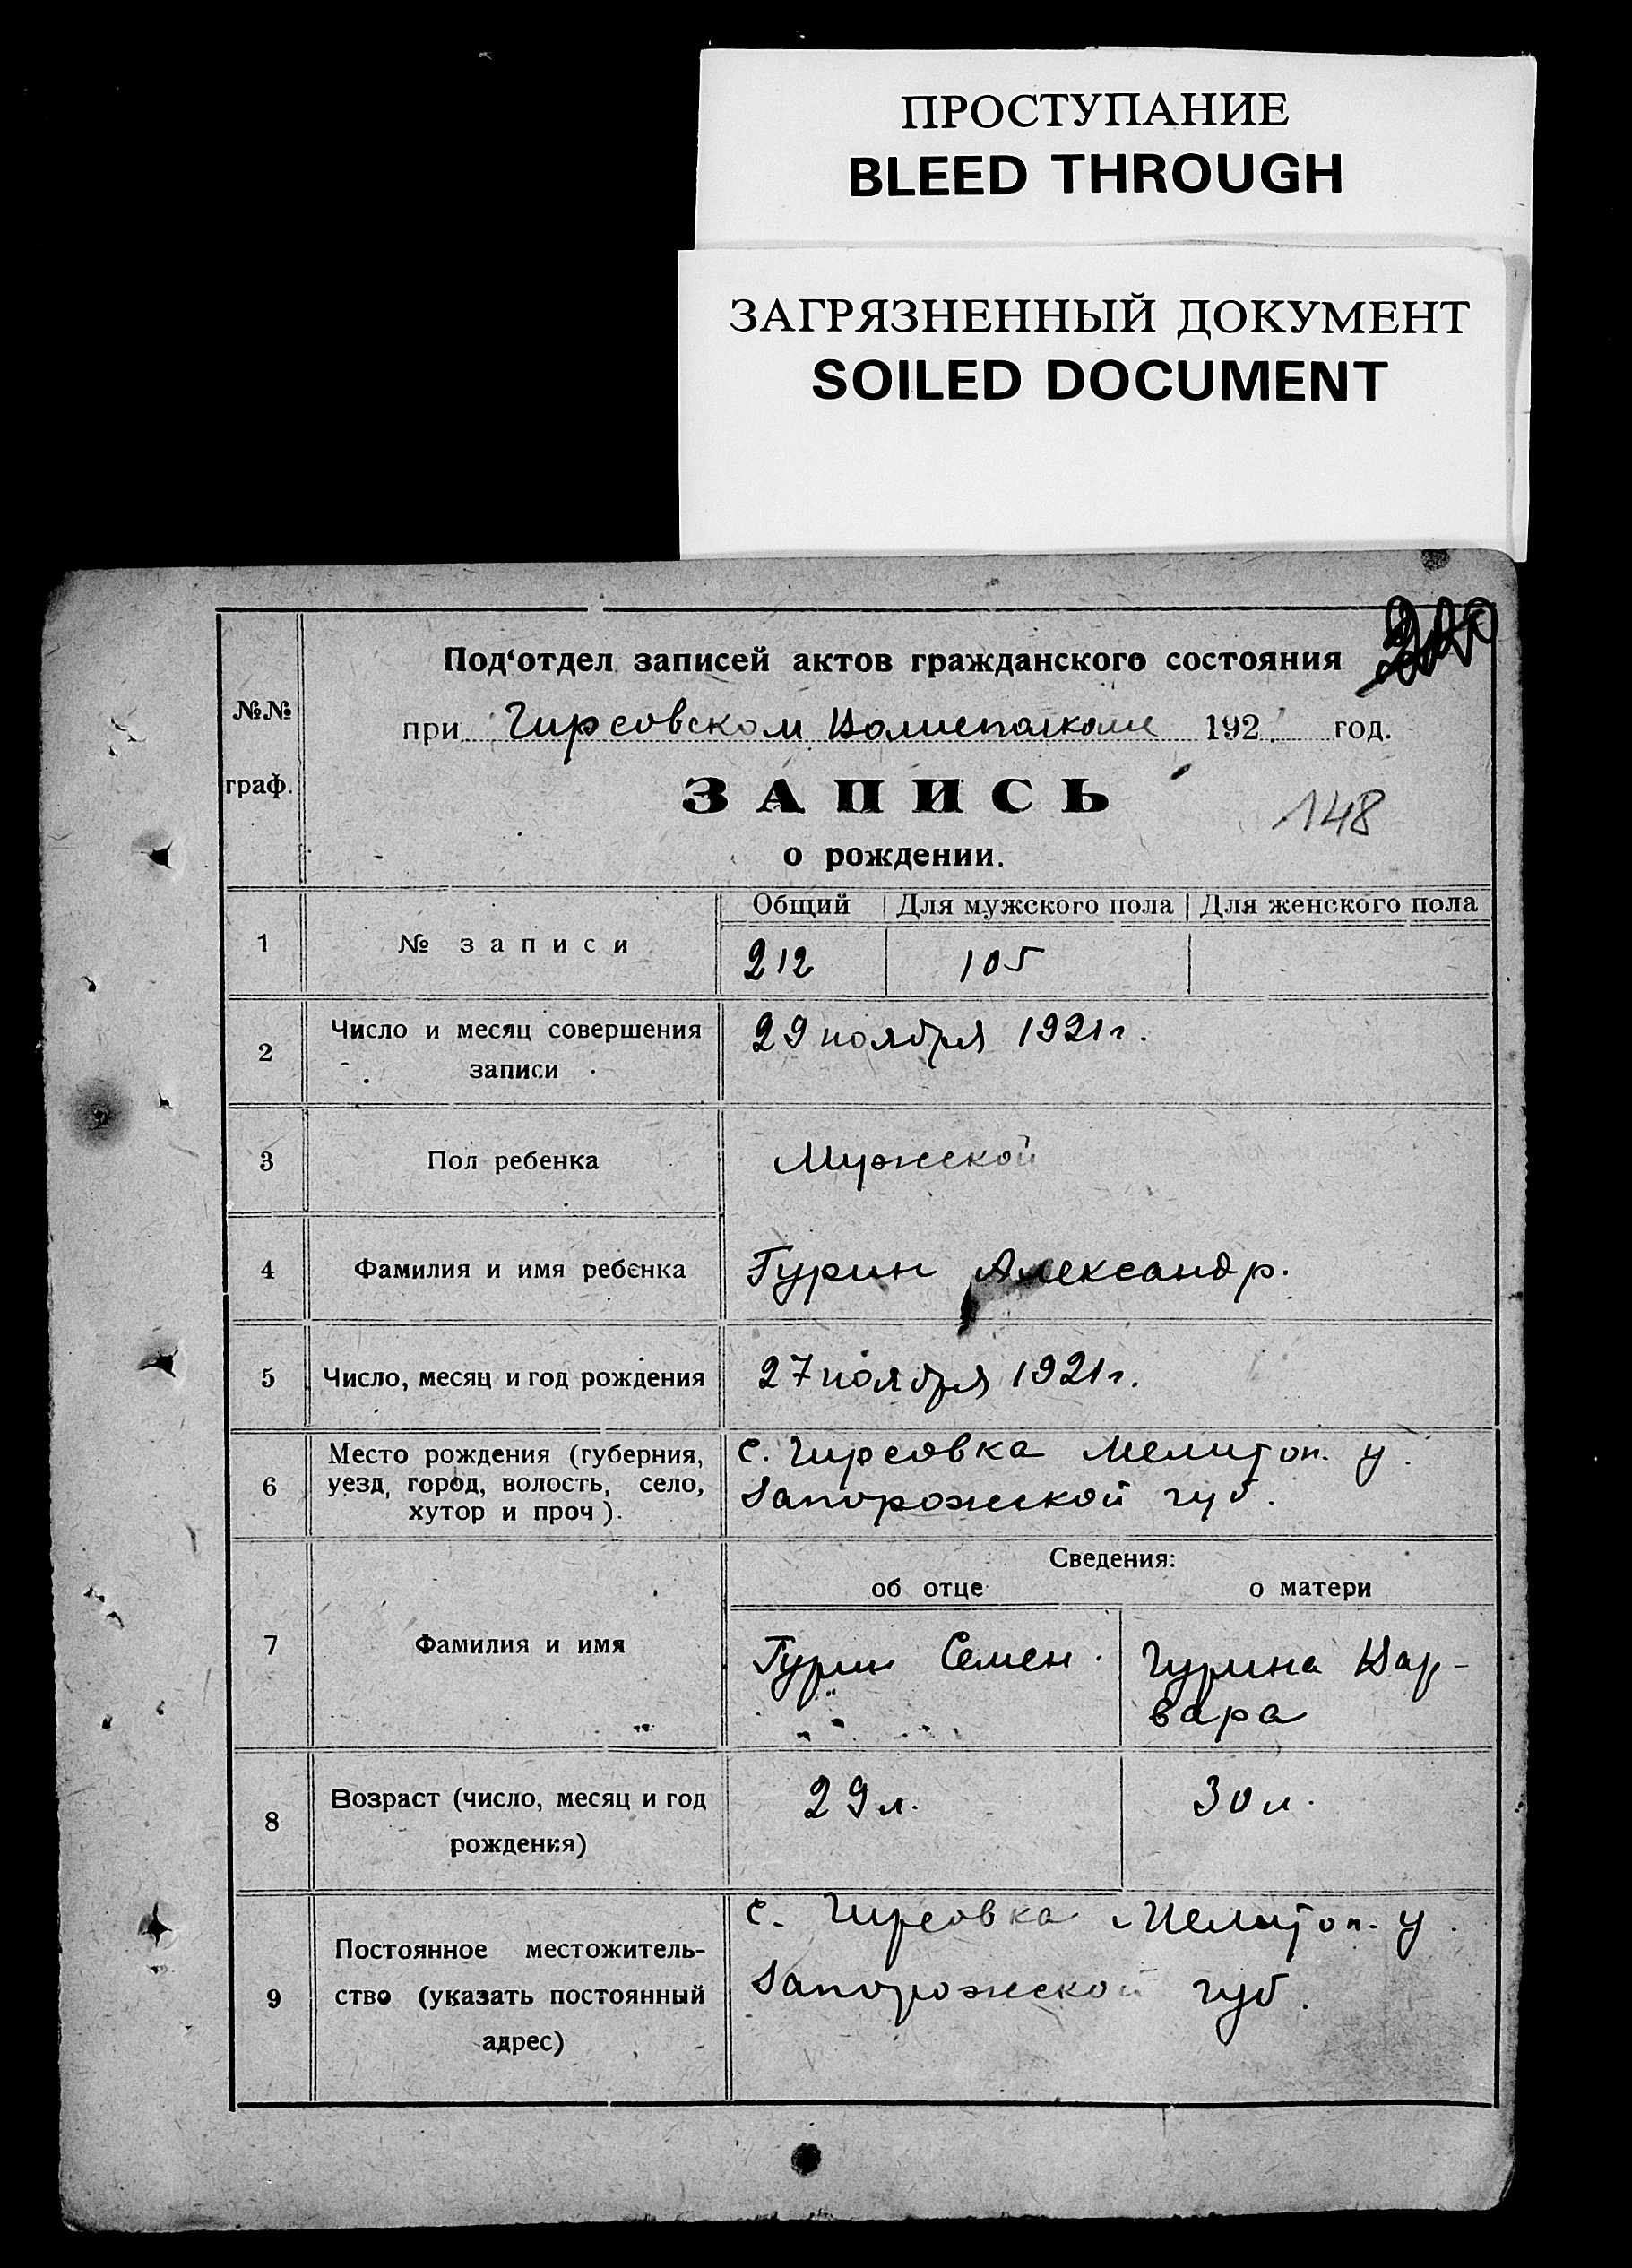 ПРОСТУПАНИЕ
BLEED THROUGH
ЗАГРЯЗНЕННЫЙ ДОКУМЕНТ
SOILED DOCUMENT
Под‘отдел записей актов гражданского состояния
№№
при Гирсовском 192 год.
граф.
ЗАПИСЬ
148
о рождении.
Общий Для мужского пола Для женского пола
1 № записи
212 105
2 Число и месяц совершения записи
29 ноября 1921 г.
3 Пол ребенка
Мужской
4 Фамилия и имя ребенка
Гурин Александр.
5 Число, месяц и год рождения
27 ноября 1921 г.
6 Место рождения (губерния,
уезд, город, волость, село,
хутор и проч).
с. Гирсовка Мелитоп. у.
Запорожской губ.
Сведения:
об отце о матери
7 Фамилия и имя
Гурин Семен.
Гурина Вар-
вара
8 Возраст (число, месяц и год
рождения)
29 л. 30 л.
9 Постоянное местожитель-
ство (указать постоянный
адрес)
с. Гирсовка Мелитоп. у.
Запорожской губ.